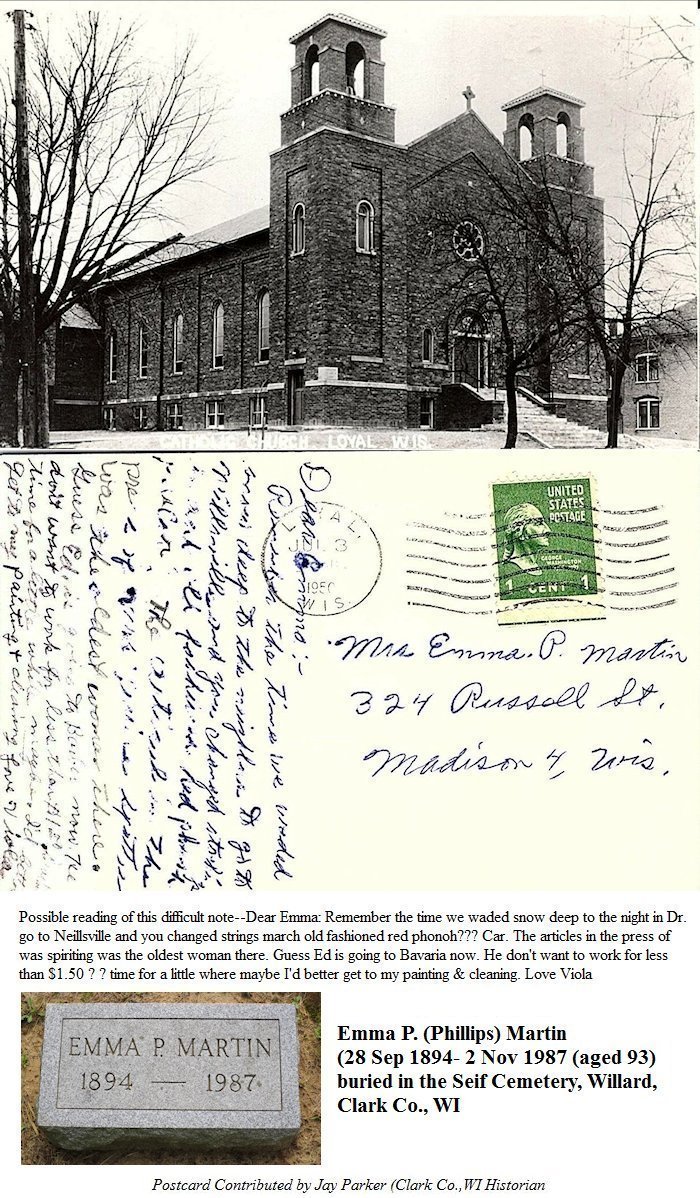 CATHOLIC CHURCH LOYAL WIS.
Dear Emma:-
Remember the time we waded
snow deep to the
Neillsville and you changed
old fashioned red
The articles in the
was the oldest woman there.
Guess Ed is going to now. He
don't want to work for less than
time for a little where maybe I'd better
get to my painting & cleaning Love Viola
LOYAL
3
1950
WIS.
UNITED
STATES
POSTAGE
GEORGE
WASHINGTON
1 CENT 1
Mrs Emma. P. Martin
324 Russell St.
Madison 4, Wis.
Possible reading of this difficult note--Dear Emma: Remember the time we waded snow deep to the night in Dr.
go to Neillsville and you changed strings march old fashioned red phonoh??? Car. The articles in the press of
was spiriting was the oldest woman there. Guess Ed is going to Bavaria now. He don't want to work for less
than $1.50 ? ? time for a little where maybe I'd better get to my painting & cleaning. Love Viola
EMMA P. MARTIN
1894 — 1987
Emma P. (Phillips) Martin
(28 Sep 1894- 2 Nov 1987 (aged 93)
buried in the Seif Cemetery, Willard,
Clark Co., WI
Postcard Contributed by Jay Parker (Clark Co.,WI Historian